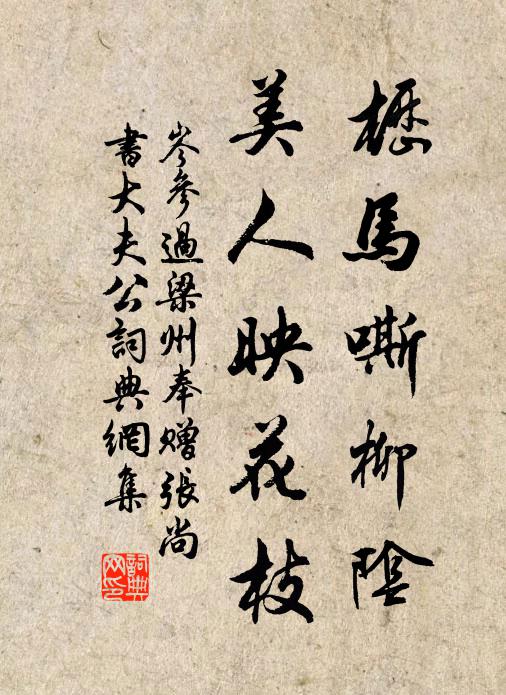 櫪馬嘶柳陰
美人映花枝
岑參過梁州奉贈張尚
書大夫公詞典網集
詞典
网印